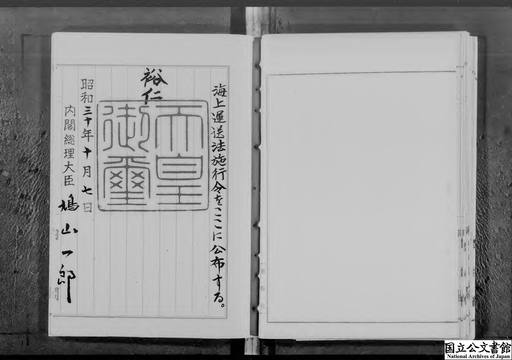 海上運送法施行令をここに公布する。
裕仁
天皇御璽
昭和三十年十月七日
内閣総理大臣 鳩山一郎
国立公文書館
National Archives of Japan